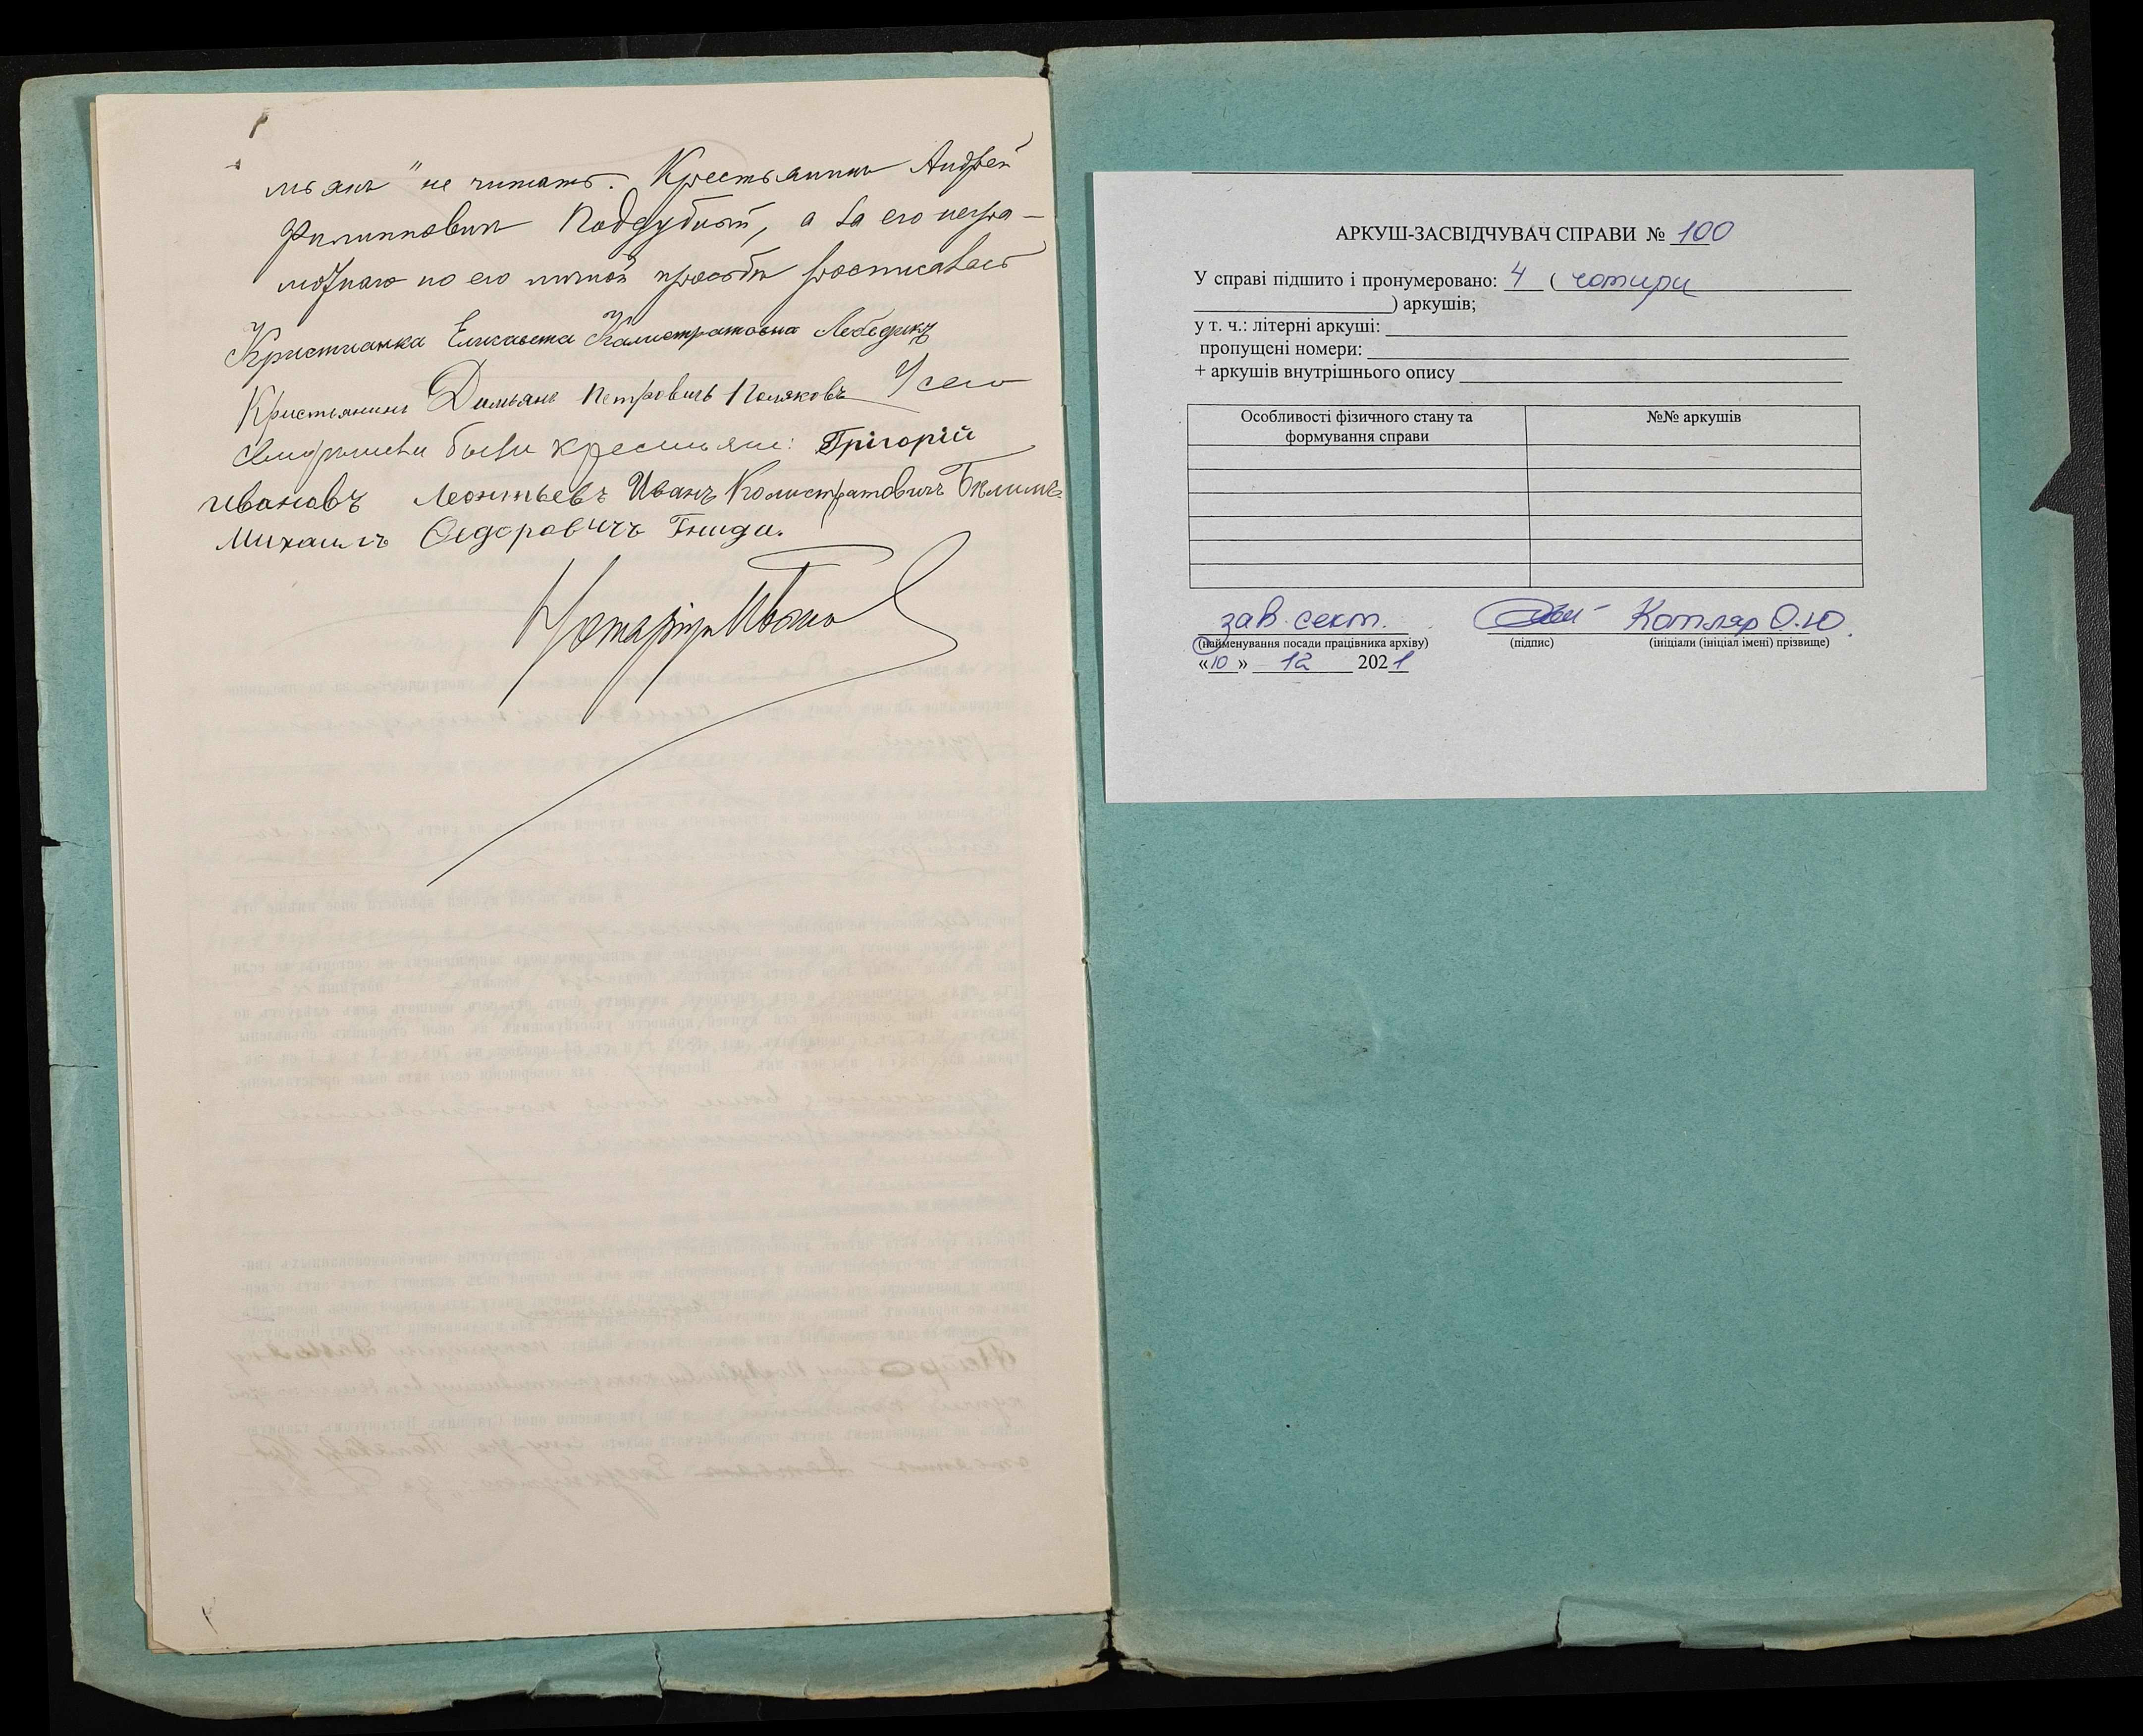 мьянъ" не читать. Крестьянинъ Андрей
Филипповичъ Поддубный, а за его негра-
мотнаго по его личной просьбѣ росписалась
Кристианка Елисавета Калистратовна Лебедикъ
Кристьянинъ Демьянъ Петровичъ Поляковъ У сего
свидѣтелями были крестьяне: Грігорій
Ивановъ Леонтьевъ Иванъ Колистратовичъ
Михаилъ Федоровичъ Гнида.
Нотаріусъ
АРКУШ-ЗАСВІДЧУВАЧ СПРАВИ № 100
У справі підшито і пронумеровано: 4 ( чотири
) аркушів;
у т. ч.: літерні аркуші:
пропущені номери:
+ аркушів внутрішнього опису
Особливості фізичного стану та формування справи
№№ аркушів
зав. сект. Котляр О.Ю.
(найменування посади працівника архіву) (підпис) (ініціали (ініціал імені) прізвище)
«10» 12 2021